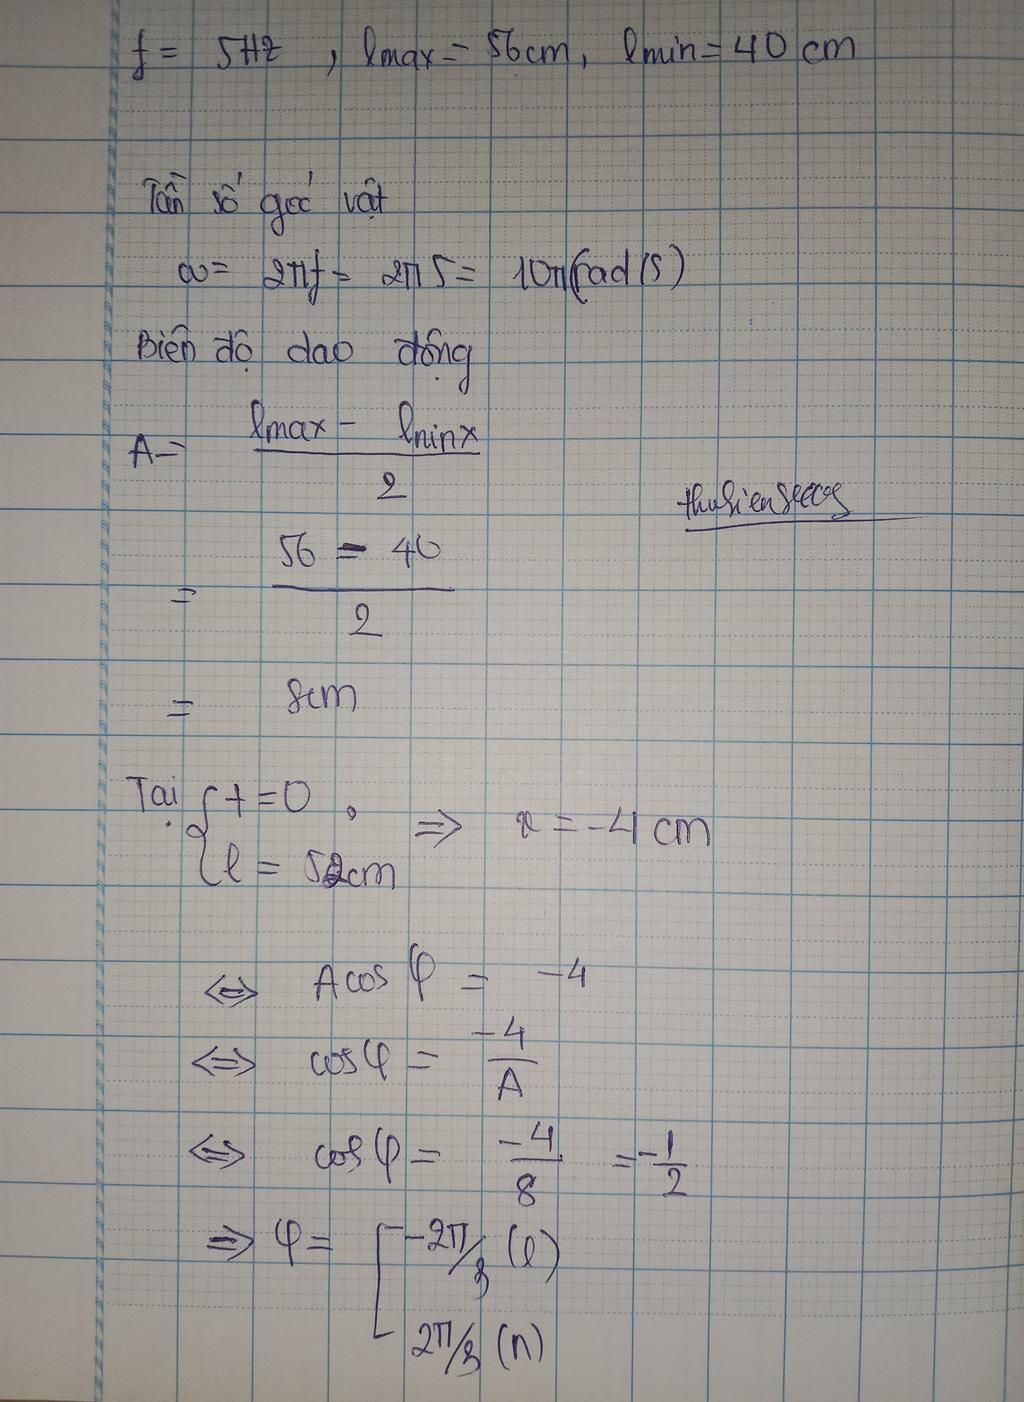 f = 5Hz , lmax = 56cm, lmin = 40 cm
Tần số góc vật
ω = 2πf = 2π5 = 10π(rad/s)
Biên độ dao động
A = lmax - lminx
2
= 56 - 40
2
= 8cm
Tại { t = 0 , l = 52cm ⇒ x = -4 cm
⇔ A cos φ = -4
⇔ cosφ = -4/A
⇔ cosφ = -4/8 = -1/2
⇒ φ = [ -2π/3 (l)
2π/3 (n)